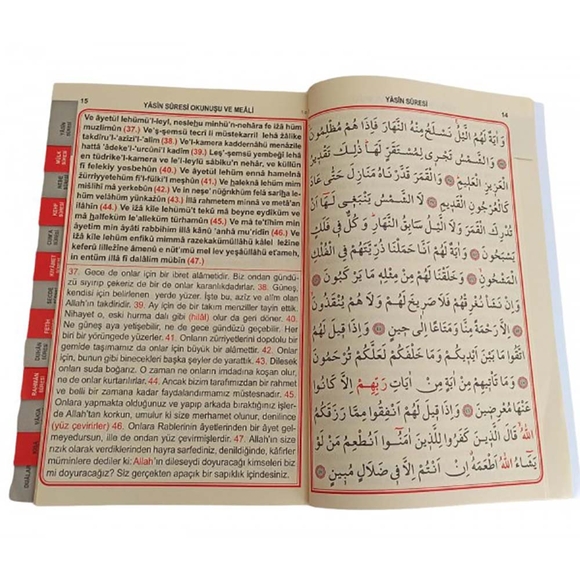 15
YÂSÎN SÛRESİ OKUNUŞU VE MEÂLİ
Ve âyetül lehümü'l-leyl, nesleḫu minhü'n-nehâra fe iẕâ hüm
muzlimûn (37.) Ve'ş-şemsü tecrî li müstekarril lehâ ẕâlike
takdîru'l-'azîzi'l-'alîm (38.) Ve'l-kamera kaddernâhü menâzile
hattâ 'âdeke'l-'urcûni'l kadîm (39.) Leş'-şemsü yembeğî lehâ
en tüdrike'l-kamera ve le'l-leylü sâbiku'n nehâr, ve küllün
fî felekiy yesbehûn (40.) Ve âyetül lehüm ennâ hamelnâ
ẕürriyyetehüm fi'l-fülki'l meşhûn (41.) Ve ḫaleknâ lehüm mim
mislihî mâ yerkebûn (42.) Ve in neşe' nüğrıkhüm felâ sarîḫa le-
hüm velâhüm yünkaẕûn (43.) İllâ rahmetem minnâ ve metâ'an
ilâhîn (44.) Ve iẕâ kîle lehümü't tekû mâ beyne eydîküm ve
mâ ḫalfeküm le'alleküm türhamûn (45.) Ve mâ te'tîhim min
âyetim min âyâti rabbihim illâ kânû 'anhâ mu'ridîn (46.) Ve
iẕâ kîle lehüm enfikû mimmâ razekakümüllâhü kâlel leẕîne
keferû lilleẕîne âmenû e nüt'ımü mel lev yeşâüllâhü et'ameh,
in entüm illâ fî dalâlim mübîn (47.)
37. Gece de onlar için bir ibret alâmetidir. Biz ondan gündü-
zü sıyırıp çekeriz de bir de onlar karanlıktadırlar. 38. Güneş,
kendisi için belirlenen yerde yüzer. İşte bu, azîz ve alîm olan
Allah'ın takdiridir. 39. Ay için de bir takım menziller tayin ettik.
Nihayet o, eski hurma dalı gibi (hilâl) olur da geri döner. 40.
Ne güneş aya yetişebilir, ne de gece gündüzü geçebilir. Her
biri bir yörüngede yüzerler. 41. Onların zürriyetlerini dopdolu bir
gemide taşımamız da onlar için büyük bir alâmettir. 42. Onlar
için, bunun gibi binecekleri başka şeyler de yarattık. 43. Dilesek
onları suda boğarız. O zaman ne onların imdadına koşan olur,
ne de onlar kurtarılırlar. 44. Ancak bizim tarafımızdan bir rahmet
ve belli bir zamana kadar faydalandırmamız müstesnadır. 45.
Onlara yapmakta olduğunuz ve yapıp arkada bıraktığınız işler-
de Allah'tan korkun, umulur ki size merhamet olunur, denilince
(yüz çevirirler) 46. Onlara Rablerinin âyetlerinden bir âyet gel-
meyedursun, ille de ondan yüz çevirmişlerdir. 47. Allah'ın size
rızık olarak verdiklerinden hayra sarfediniz, denildiğinde, kâfirler
müminlere dediler ki: Allah'ın dileseydi doyuracağı kimseleri biz
mi doyuracağız? Siz gerçekten apaçık bir sapıklık içindesiniz.
YÂSÎN SÛRESİ
14
وَاٰيَةٌ لَهُمُ الَّيْلُ نَسْلَخُ مِنْهُ النَّهَارَ فَاِذَا هُمْ مُظْلِمُونَ
وَالشَّمْسُ تَجْرٖى لِمُسْتَقَرٍّ لَهَا ذٰلِكَ تَقْدٖيرُ
الْعَزٖيزِ الْعَلٖيمِ وَالْقَمَرَ قَدَّرْنَاهُ مَنَازِلَ حَتّٰى عَادَ
كَالْعُرْجُونِ الْقَدٖيمِ لَا الشَّمْسُ يَنْبَغٖى لَهَا اَنْ
تُدْرِكَ الْقَمَرَ وَلَا الَّيْلُ سَابِقُ النَّهَارِ وَكُلٌّ فٖى فَلَكٍ
يَسْبَحُونَ وَاٰيَةٌ لَهُمْ اَنَّا حَمَلْنَا ذُرِّيَّتَهُمْ فِى الْفُلْكِ
الْمَشْحُونِ وَخَلَقْنَا لَهُمْ مِنْ مِثْلِهٖ مَا يَرْكَبُونَ
وَاِنْ نَشَأْ نُغْرِقْهُمْ فَلَا صَرٖيخَ لَهُمْ وَلَا هُمْ يُنْقَذُونَ
اِلَّا رَحْمَةً مِنَّا وَمَتَاعًا اِلٰى حٖينٍ وَاِذَا قٖيلَ لَهُمُ
اتَّقُوا مَا بَيْنَ اَيْدٖيكُمْ وَمَا خَلْفَكُمْ لَعَلَّكُمْ تُرْحَمُونَ
وَمَا تَأْتٖيهِمْ مِنْ اٰيَةٍ مِنْ اٰيَاتِ رَبِّهِمْ اِلَّا كَانُوا
عَنْهَا مُعْرِضٖينَ وَاِذَا قٖيلَ لَهُمْ اَنْفِقُوا مِمَّا رَزَقَكُمُ
اللّٰهُ قَالَ الَّذٖينَ كَفَرُوا لِلَّذٖينَ اٰمَنُوا اَنُطْعِمُ مَنْ لَوْ
يَشَاءُ اللّٰهُ اَطْعَمَهُ اِنْ اَنْتُمْ اِلَّا فٖى ضَلَالٍ مُبٖينٍ
YÂSİN
SÛRESİ
MÜLK
SÛRESİ
NEBE
SÛRESİ
KEHF
SÛRESİ
CUM'A
SÛRESİ
KIYÂMET
SÛRESİ
SECDE
FETH
DUHÂN
SÛRESİ
RAHMÂN
SÛRESİ
VÂKIA
DUÂLAR